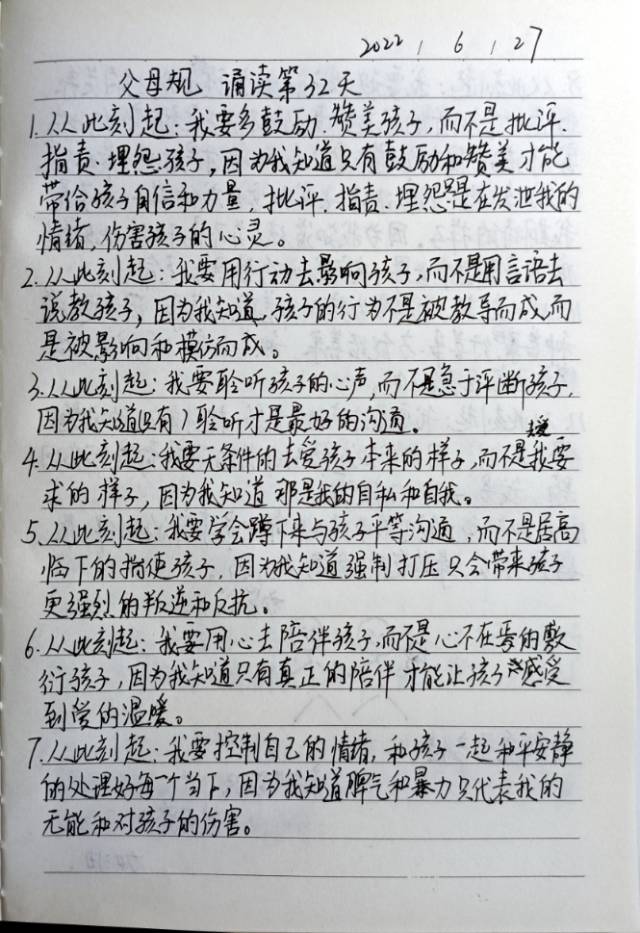 2022, 6, 27
父母规 诵读第32天
1.从此刻起:我要多鼓励.赞美孩子,而不是批评.
指责.埋怨孩子,因为我知道只有鼓励和赞美才能
带给孩子自信和力量,批评.指责.埋怨是在发泄我的
情绪,伤害孩子的心灵。
2.从此刻起:我要用行动去影响孩子,而不是用言语去
说教孩子,因为我知道,孩子的行为不是被教导而成,而
是被影响和模仿而成。
3.从此刻起:我要聆听孩子的心声,而不是急于评断孩子.
因为我知道(只有)聆听才是最好的沟通。
4.从此刻起:我要无条件的去爱孩子本来的样子,而不是去爱我要
求的样子,因为我知道那是我的自私和自我。
5.从此刻起:我要学会蹲下来与孩子平等沟通,而不是居高
临下的指使孩子,因为我知道强制打压只会带来孩子
更强烈的叛逆和反抗。
6.从此刻起:我要用心去陪伴孩子,而不是心不在焉的敷
衍孩子,因为我知道只有真正的陪伴才能让孩子感受
到爱的温暖。
7.从此刻起:我要控制自己的情绪,和孩子一起和平安静
的处理好每一个当下,因为我知道脾气和暴力只代表我的
无能和对孩子的伤害。